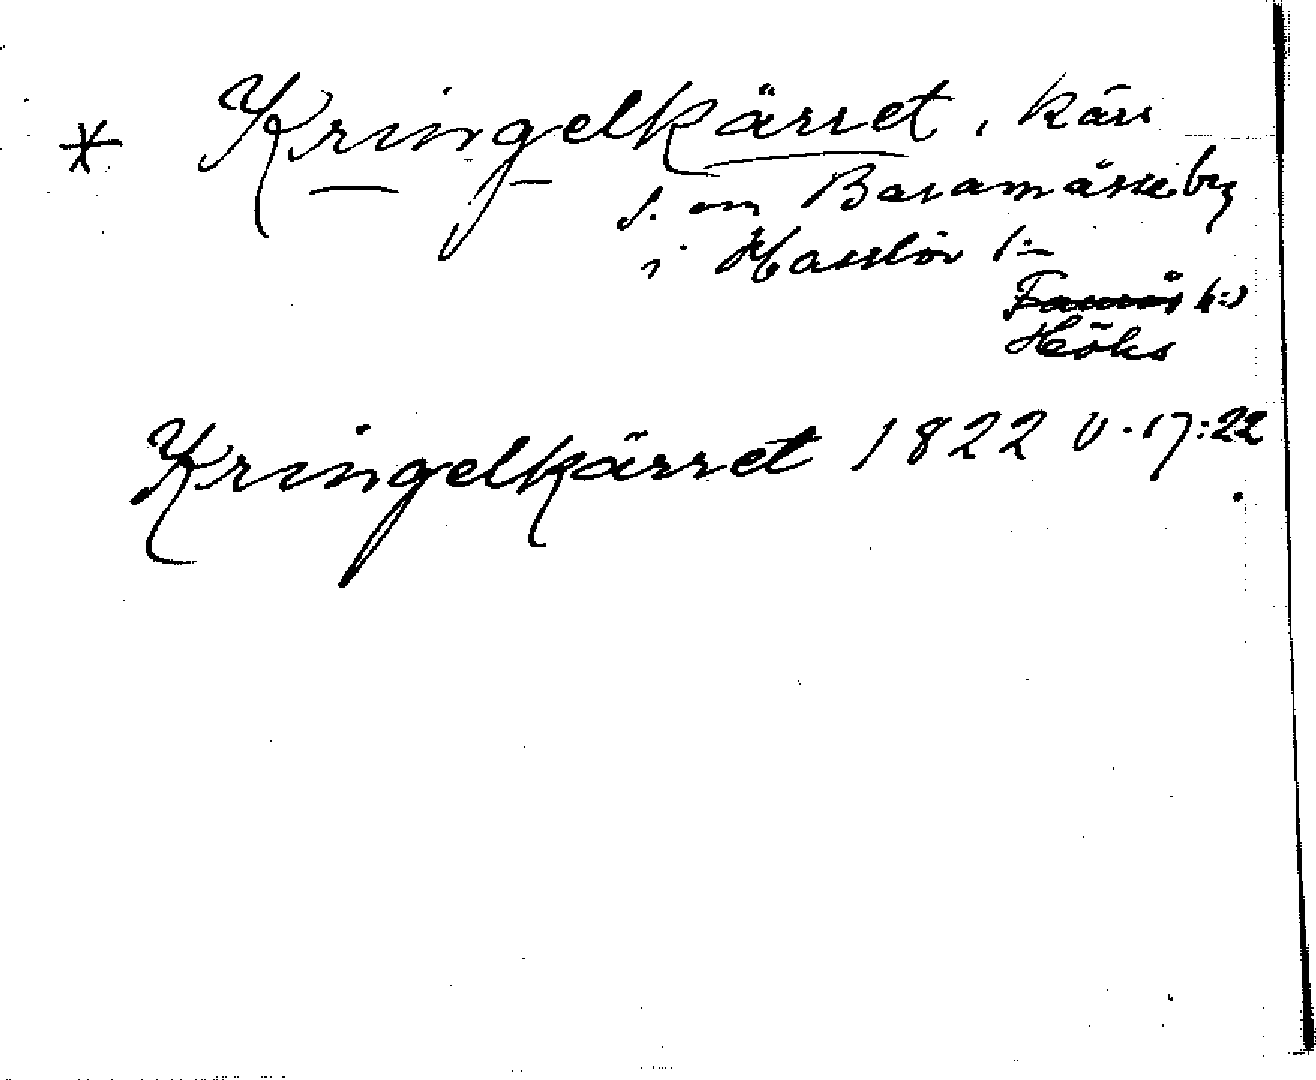 * Kringelkärret, kärr
s. om Baramårseby
i Hasslöv s:n
Höks
Kringelkärret 1822 U-17:22